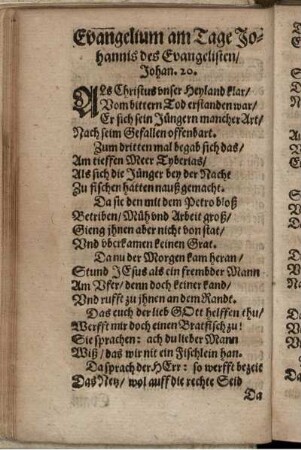 Evangelium am Tage Jo-
hannis des Evangelisten/
Johan. 20.
ALs Christus vnser Heyland klar/
Vom bittern Tod erstanden war/
Er sich sein Jüngern mancher Art/
Nach seim Gefallen offenbart.
Zum dritten mal begab sich das/
Am tieffen Meer Tyberias/
Als sich die Jünger bey der Nacht
Zu fischen hatten nauß gemacht.
Da sie den mit dem Petro bloß
Betriben/ Müh vnd Arbeit groß/
Gieng jhnen aber nicht von stat/
Vnd vberkamen keinen Grat.
Da nu der Morgen kam heran/
Stund JEsus als ein frembder Mann
Am Vfer/ denn doch keiner kand/
Vnd rufft zu jhnen an dem Randt.
Das euch der lieb GOtt helffen thu/
Werfft mir doch einen Bratfisch zu!
Sie sprachen: ach du lieber Mann
Wiß/ das wir nit ein Fischlein han.
Da sprach der HErr: so werfft bezeit
Das Netz/ wol auff die rechte Seid
Da